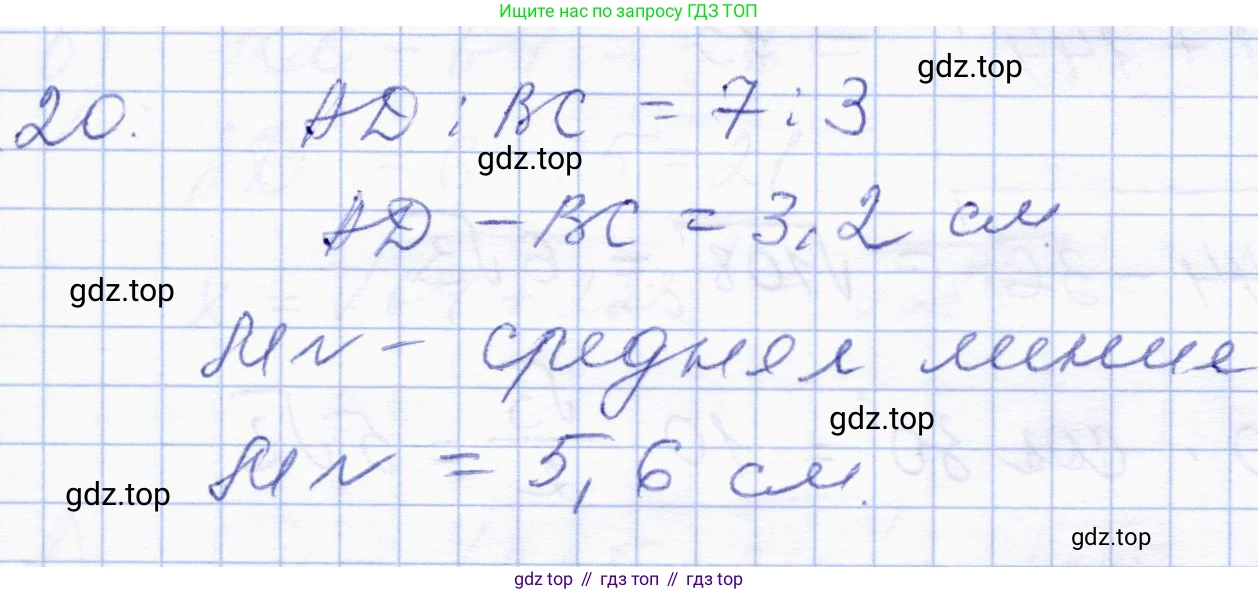 Ищите нас по запросу ГДЗ ТОП
gdz.top
20. AD : BC = 7 : 3
gdz.top
AD - BC = 3,2 см.
gdz.top
MN - средняя линия
gdz.top
MN = 5,6 см.
gdz.top
gdz.top
gdz top // гдз топ // gdz top